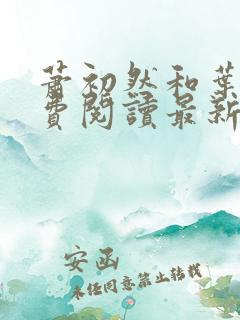 萧初然和葉
費閱讀最新
安函
未经同意禁止转载